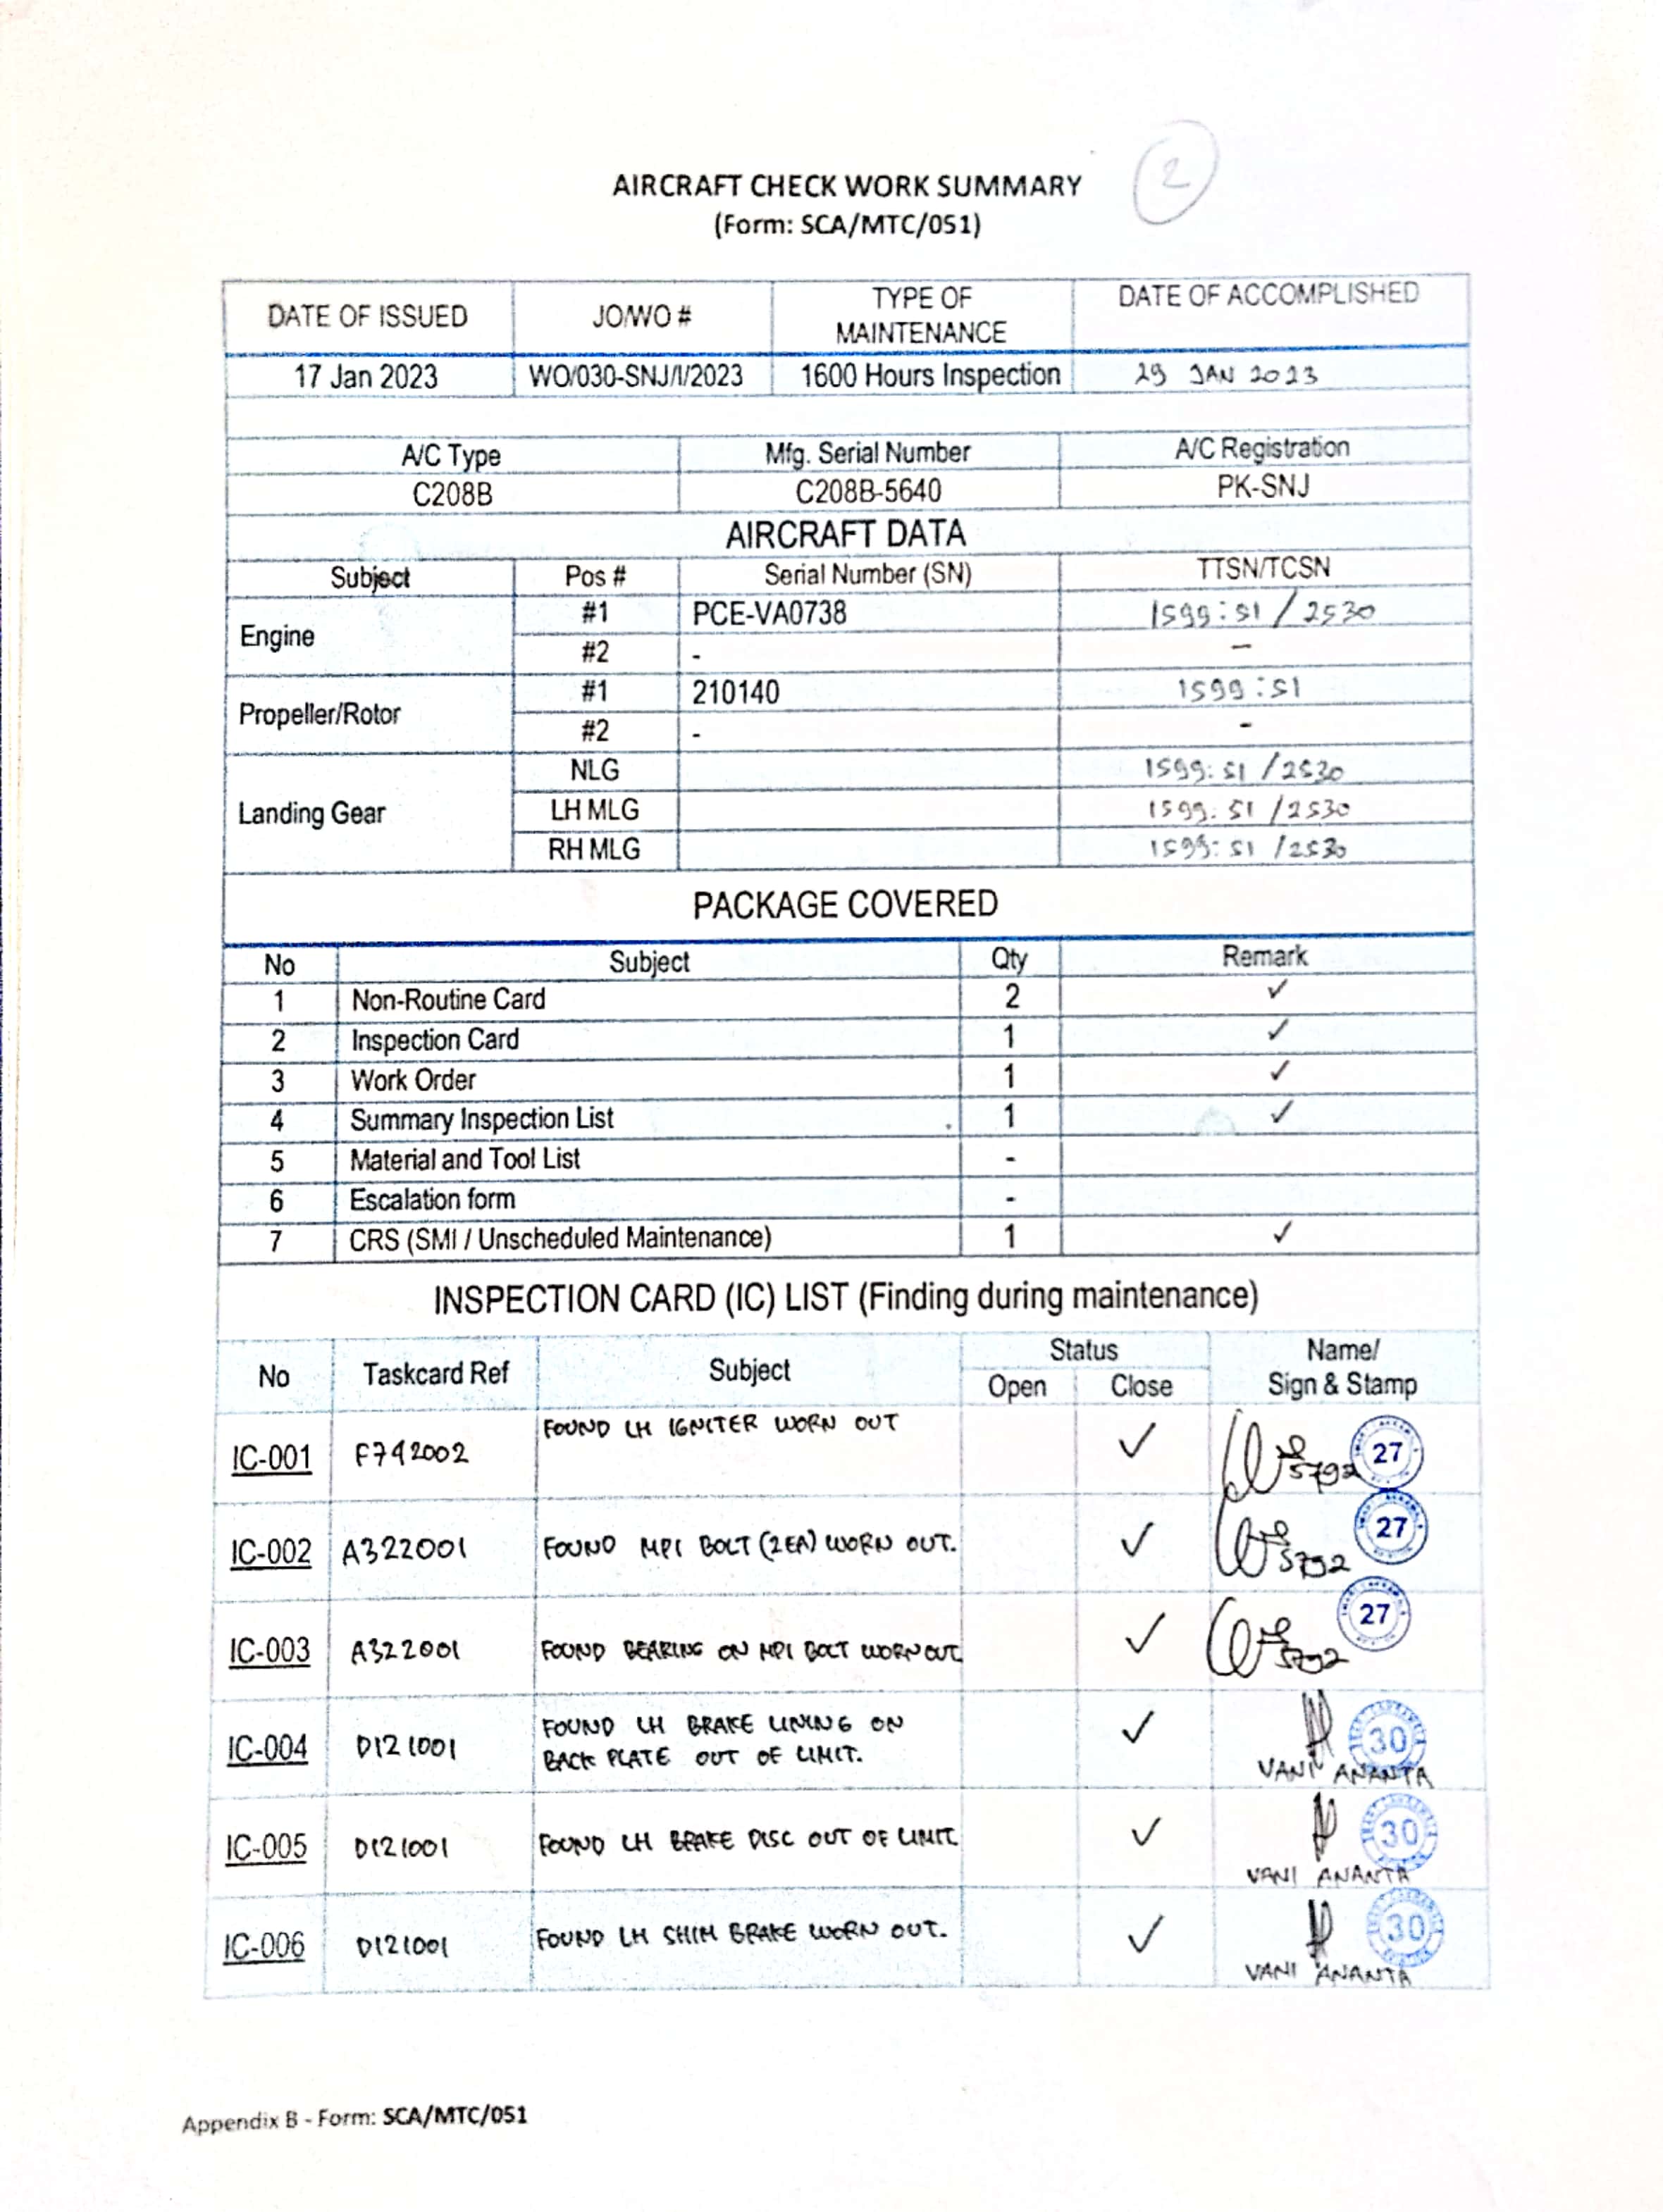 2
AIRCRAFT CHECK WORK SUMMARY
(Form: SCA/MTC/051)
DATE OF ISSUED JO/WO # TYPE OF MAINTENANCE DATE OF ACCOMPLISHED
17 Jan 2023 WO/030-SNJ/I/2023 1600 Hours Inspection 29 JAN 2023
A/C Type Mfg. Serial Number A/C Registration
C208B C208B-5640 PK-SNJ
AIRCRAFT DATA
Subject Pos # Serial Number (SN) TTSN/TCSN
Engine #1 PCE-VA0738 1599:51 / 2530
#2 - -
Propeller/Rotor #1 210140 1599:51
#2 - -
Landing Gear NLG 1599:51 / 2530
LH MLG 1599:51 / 2530
RH MLG 1599:51 / 2530
PACKAGE COVERED
No Subject Qty Remark
1 Non-Routine Card 2 ✓
2 Inspection Card 1 ✓
3 Work Order 1 ✓
4 Summary Inspection List 1 ✓
5 Material and Tool List -
6 Escalation form -
7 CRS (SMI / Unscheduled Maintenance) 1 ✓
INSPECTION CARD (IC) LIST (Finding during maintenance)
No Taskcard Ref Subject Status Name/
Open Close Sign & Stamp
IC-001 F742002 FOUND LH IGNITER WORN OUT ✓ 5792 27
IC-002 A322001 FOUND MPI BOLT (2EA) WORN OUT. ✓ 5792 27
IC-003 A322001 FOUND BEARING ON MPI BOLT WORN OUT ✓ 5792 27
IC-004 D121001 FOUND LH BRAKE LINING ON
BACK PLATE OUT OF LIMIT. ✓ 30
VANI ANANTA
IC-005 D121001 FOUND LH BRAKE DISC OUT OF LIMIT ✓ 30
VANI ANANTA
IC-006 D121001 FOUND LH SHIM BRAKE WORN OUT. ✓ 30
VANI ANANTA
Appendix B - Form: SCA/MTC/051